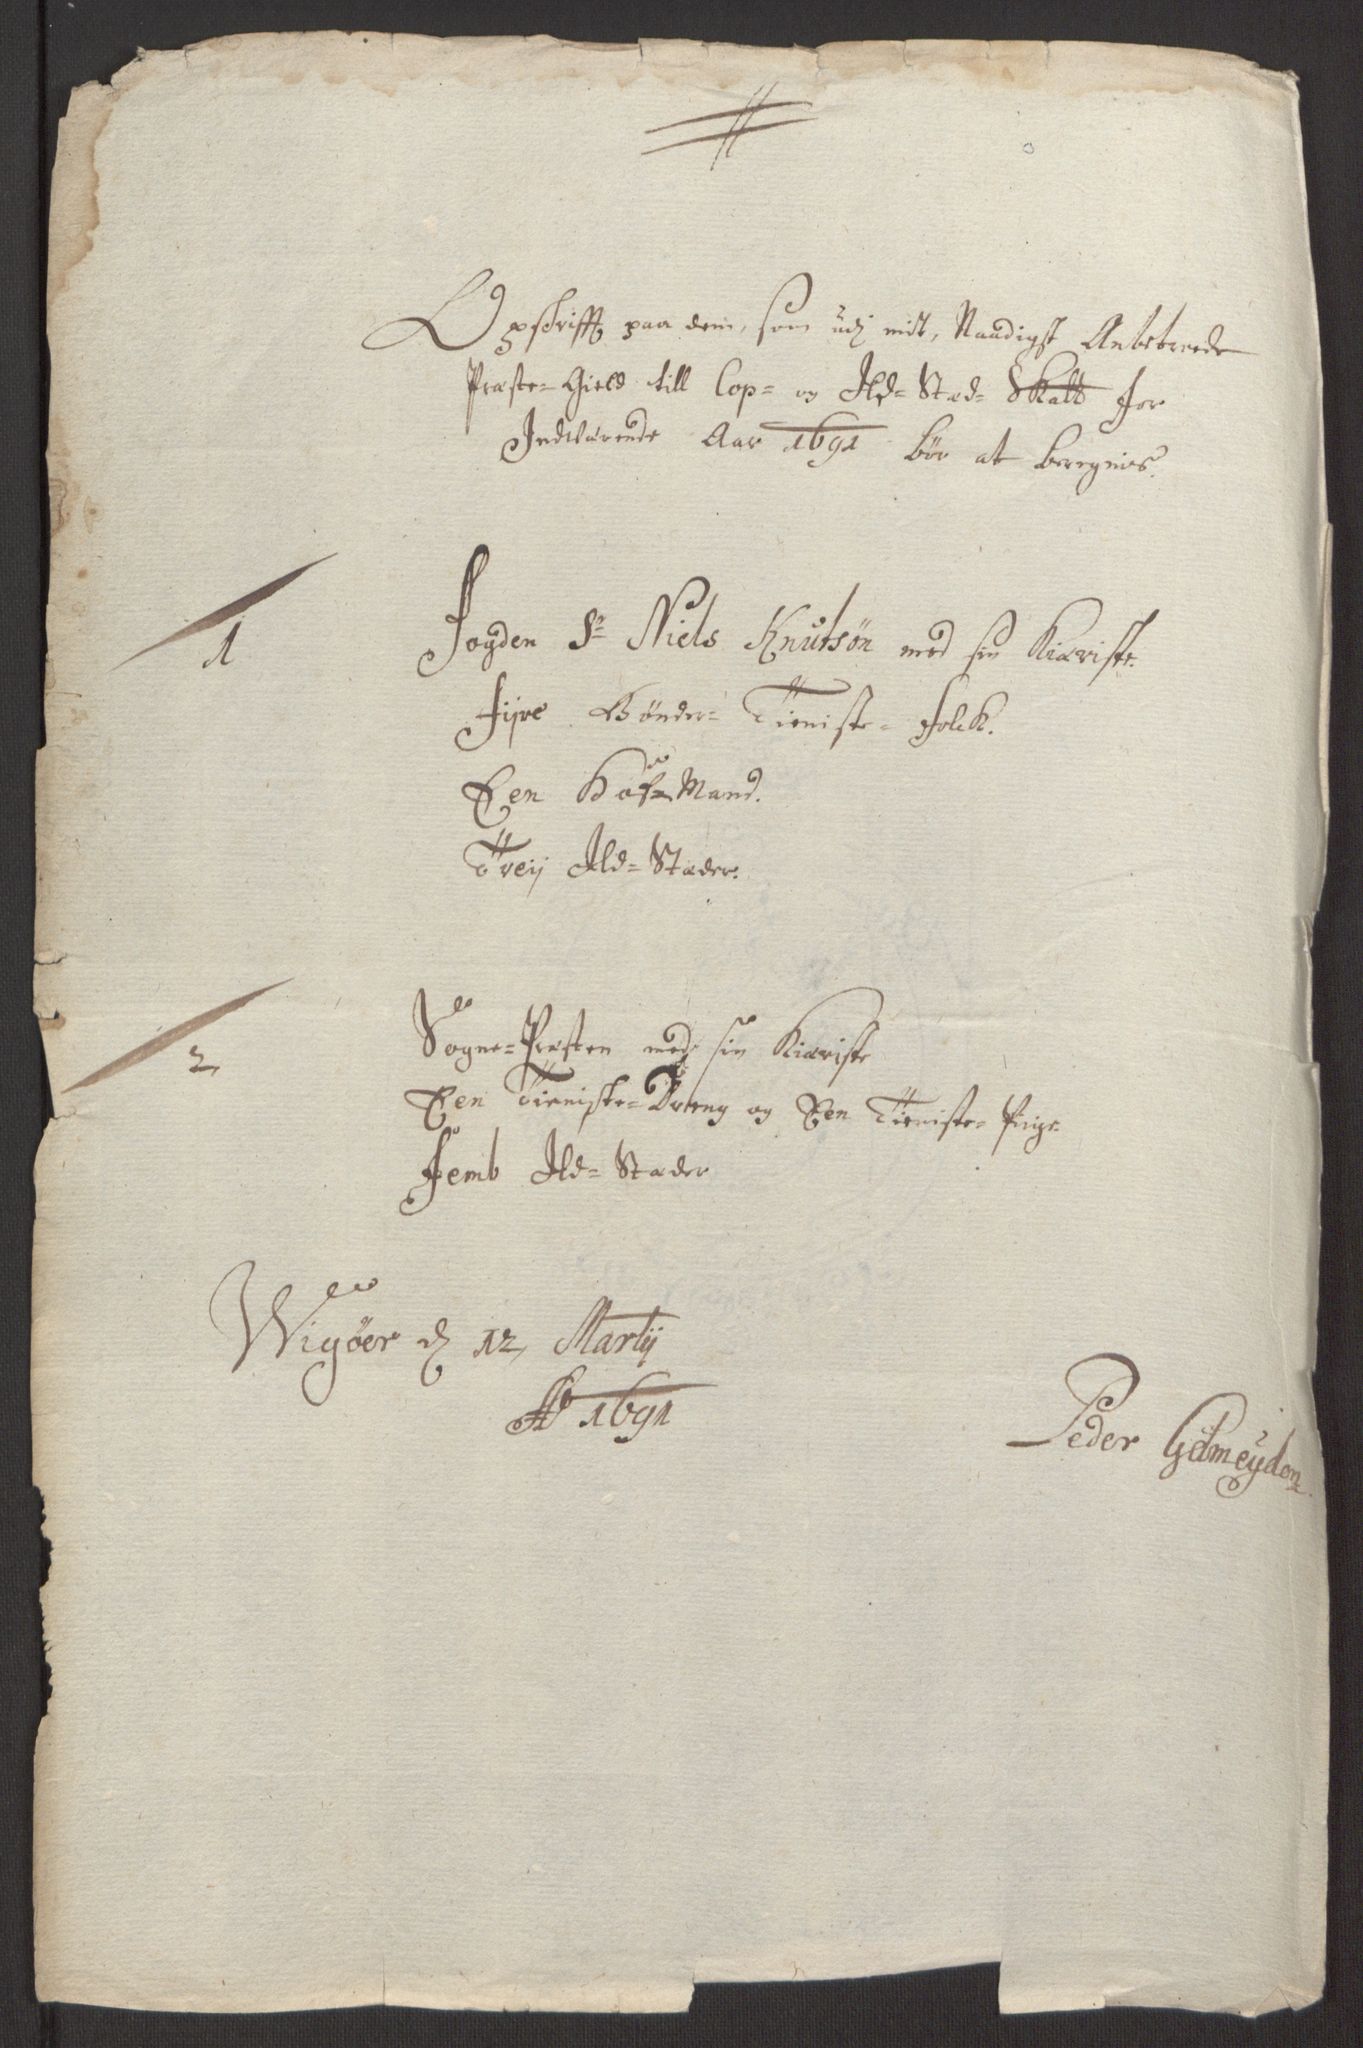 Opskrifft paa dem, som udj mit, Naadigst Anbetroede
Præste-Gield till Cop- og Ild-Sted-Skatt for
Indværende Aar 1691 bør at beregnes.
1
Fogden Sr Niels Knutsøn med sin Kiæriste
Fijre Bønder-Tieniste-Folck.
Een Huus-Mand.
Treij Ild-Stæder.
2
Sogne-Præsten med sin Kiæriste
Een Tieniste-Dreng og Een Tieniste-Pige
Femb Ild-Stæder
Wigøer d 12 Martij
Ao 1691
Peder